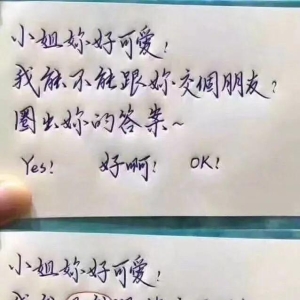 小姐妳好可愛!
我能不能跟妳交個朋友?
圈出妳的答案~
Yes! 好啊! OK!
小姐妳好可愛!